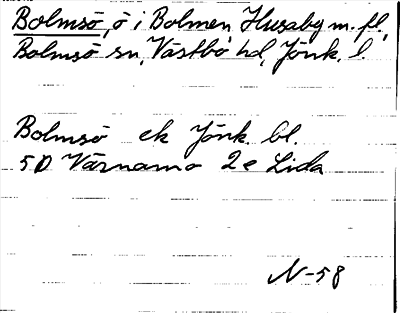 Bolmsö, ö i Bolmen Husaby m. fl,
Bolmsö sn, Västbo hd, Jönk. l.
Bolmsö ek Jönk. bl.
5D Värnamo 2e Lida
N-58